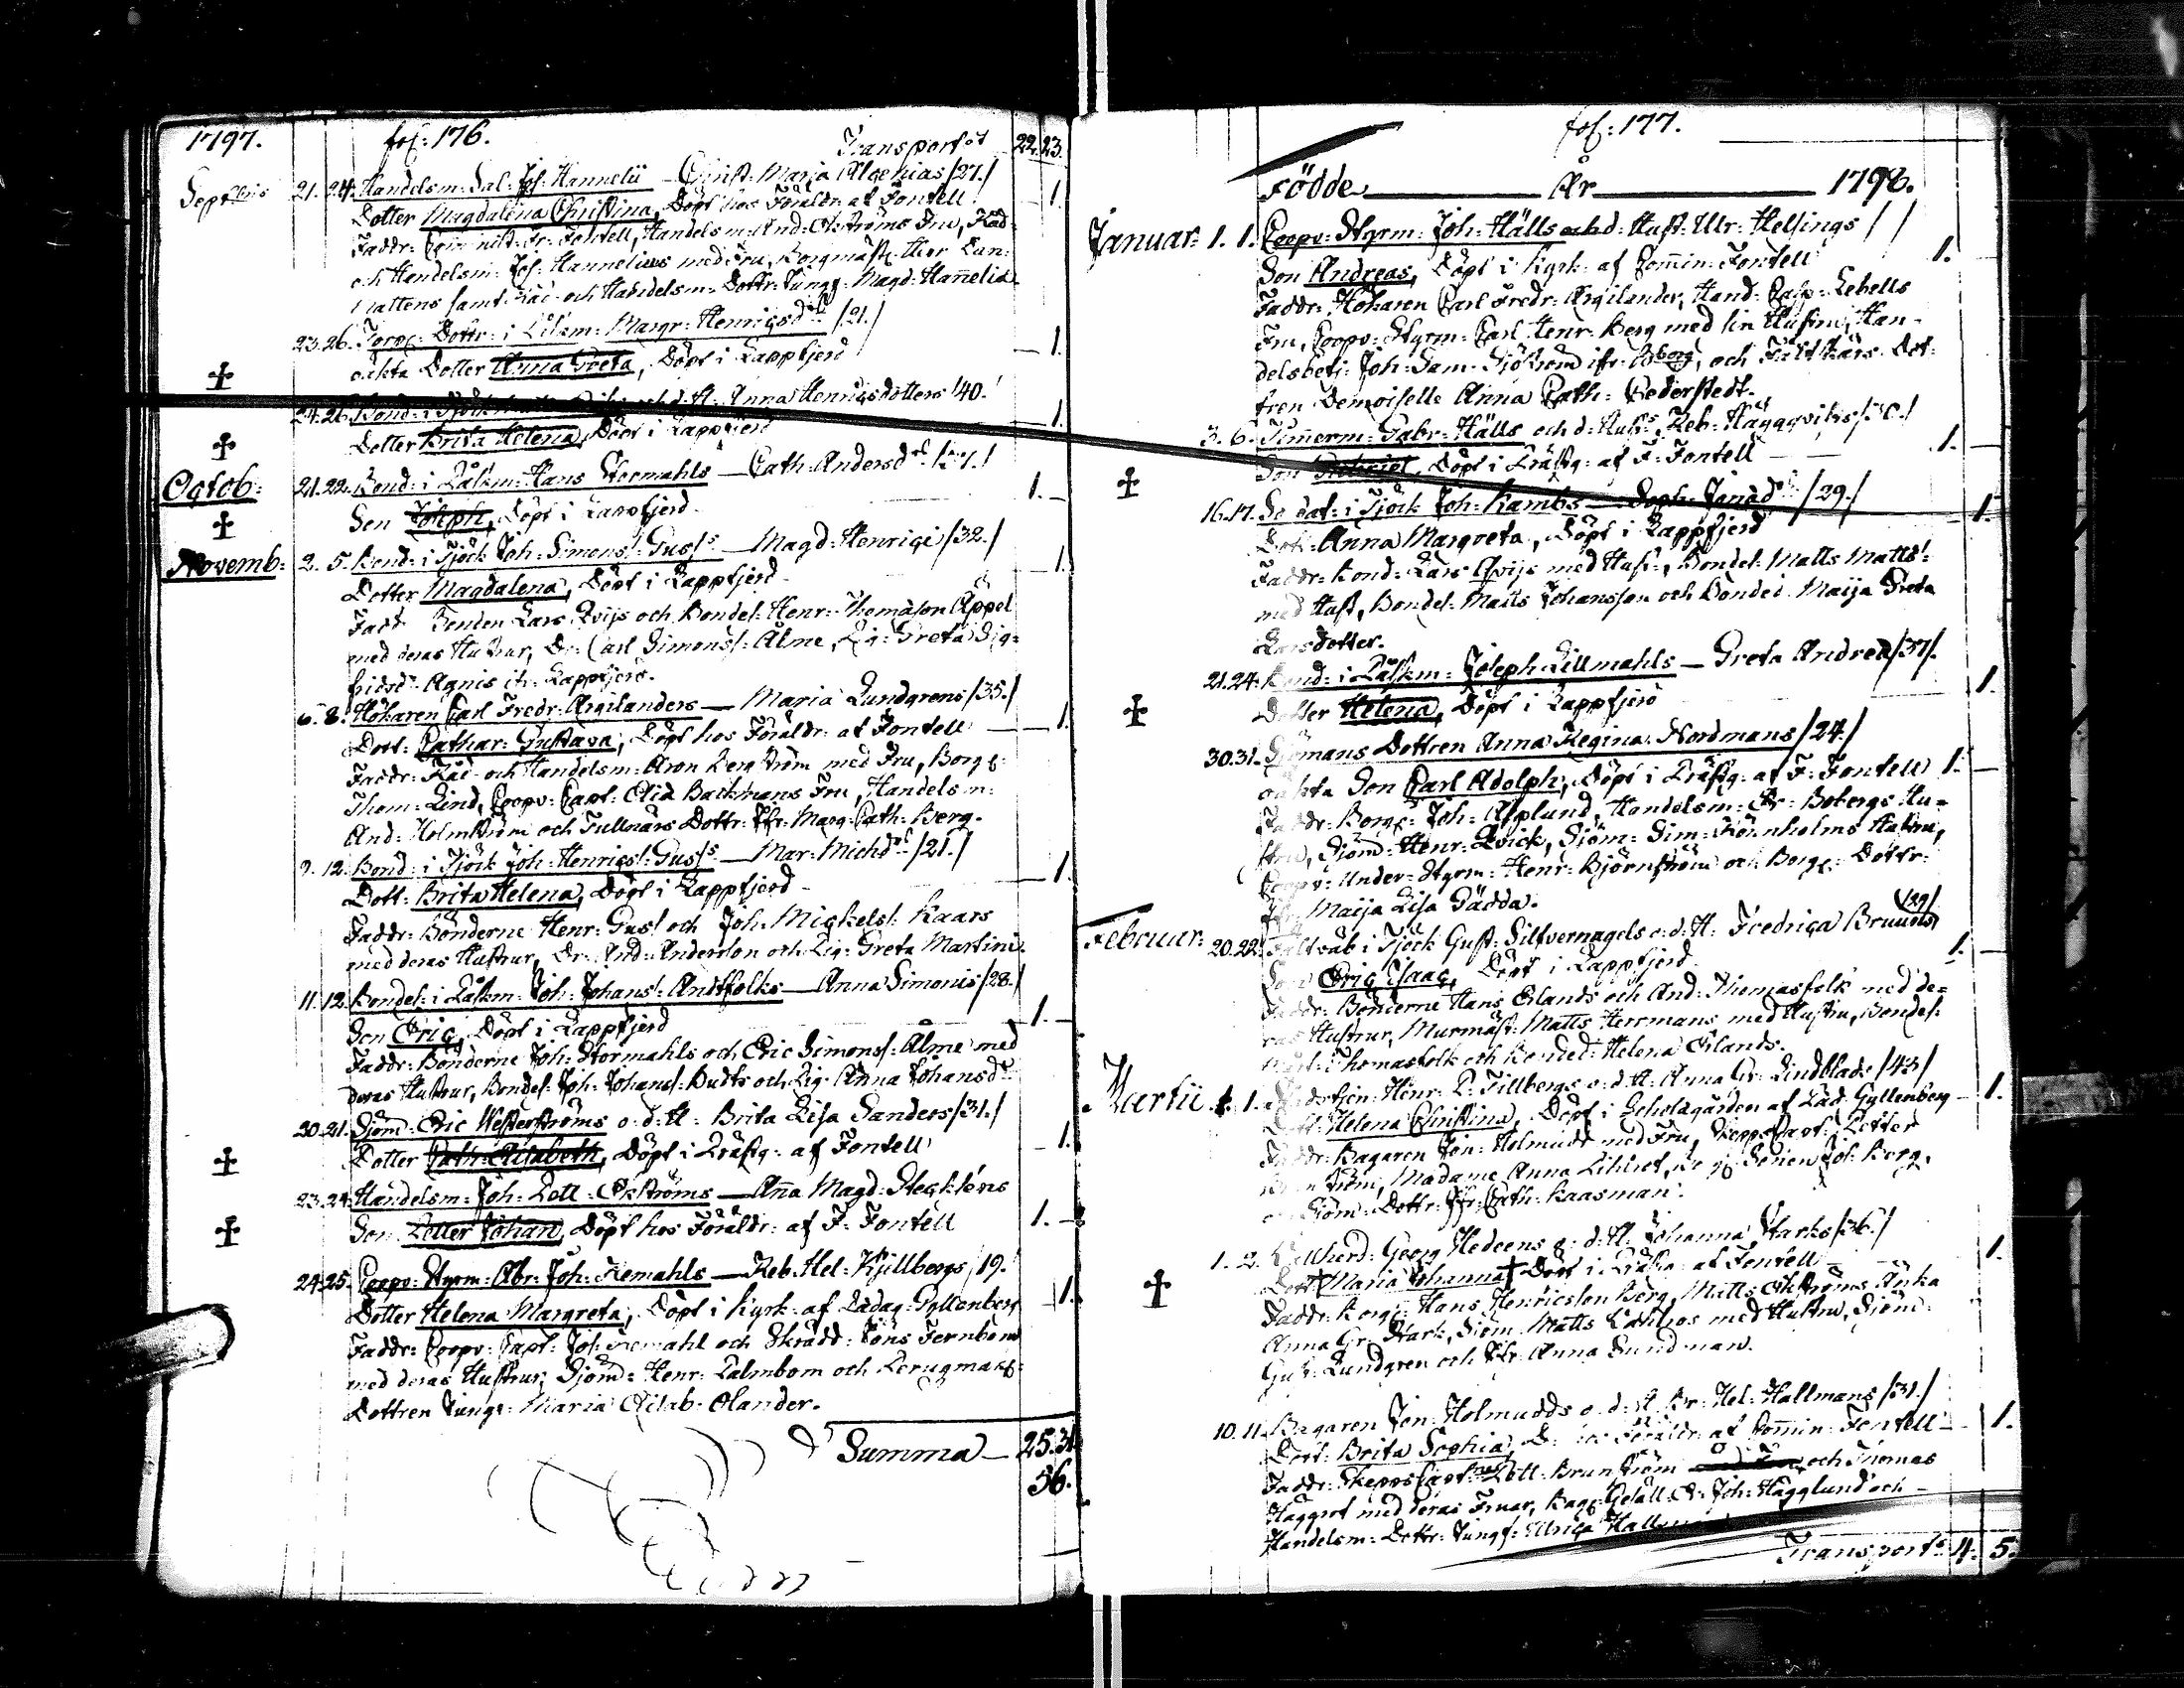 1797. fol: 176. Transport 22. 23.
Septbris 21. 24. Handelsm: Sal: Jos: Hannelii — Christ: Maria Algehias /27./
Dotter Magdalena Christina, Döpt hos Föräldr: af Fontell — 1.
Faddr: Comminist: Fr: Fontell, Handelsm: And: Ekströms Fru, Råd-
och Handelsm: Jos: Hannelius med Fru, Borgmäst: Her Lun:
samt Råd- och Handelsm: Dottr: Jungf: Magd: Hanelia
23. 26. Torp: Dottr: i Låkm: Margr: Henricsdr /21./
oäkta Dotter Anna Greta, Döpt i Lappfjerd — 1.
24. 26. Bond: i Tjöck o: d: H: Anna Henricsdotters /40./
Dotter Brita Helena, Döpt i Lappfjerd — 1.
Octob: 21. 22. Bond: i Låkm: Hans Stormahls — Cath: Andersdr
Son Joseph, Döpt i Lappfjerd 1. —
Novemb: 2. 5. Bond: i Tjöck Joh: Simons: Gus:s — Magd: Henrici /32./
Dotter Magdalena, Döpt i Lappfjerd — 1.
Fadd: Bonden Lars Qvijs och Bondes: Henr: Thomason Appel
med deras Hustrur, Dr: Carl Simons: Alme, Pig: Greta Sig-
fridsdr Agnis ifr: Lappfjerd.
6. 8. Hökaren Carl Fredr: Argilanders — Maria Lundgrens /35./
Dott: Cathar: Gustava, Döpt hos Föräldr: af Fontell — 1.
Faddr: Råd- och Handelsm: Aron Bergström med Fru, Borg:
Thom: Lind, Coopv: Capt: Elia Backmans Fru, Handelsm:
And: Holmström och Tullnärs Dottr: Jfr: Marg: Cath: Berg.
9. 12. Bond: i Tjöck Joh: Henrics: Gus:s — Mar: Michdr /21./
Dott: Brita Helena, Döpt i Lappfjerd — 1.
Faddr: Bönderne Henr: Gus: och Joh: Mickels: Kaars
med deras Hustrur, Dr: And: Anderson och Pig: Greta Martini.
11. 12. Bondes: i Låkm: Joh: Johans: Andtfolks — Anna Simonis /28./
Son Eric, Döpt i Lappfjerd — 1. —
Faddr: Bönderne Joh: Stormahls och Eric Simons: Alme med
deras Hustrur, Bondes: Joh: Johans: Budts och Pig: Anna Johansdr
20. 21. Sjöm: Eric Westerströms o: d: H: Brita Lisa Sanders /31./
Dotter Cath: Elisabeth, Döpt i Kräftg: af Fontell — 1.
23. 24. Handelsm: Joh: Zett: Ekströms — Ana Magd: Stecksens
Son Zetter Johan, Döpt hos Föräldr: af F: Fontell 1. —
24. 25. Coopv: Styrm: Abr: Joh: Remahls — Reb: Hel: Kjellbergs /19./
Dotter Helena Margreta, Döpt i Kyrk: af Pädag: Gyllenberg — 1.
Faddr: Coopv: Capt: Joh: Remahl och Skrädd: Jöns Fernbom
med deras Hustrur, Sjöm: Henr: Palmbom och Perugmak:
Dottren Jungf: Maria Elisab: Olander.
Summa — 25. 31.
56.
fol: 177.
Födde — År — 1798.
Januar: 1. 1. Coopv: Styrm: Joh: Hälls och d: Hust: Ulr: Helsings / /
Son Andreas, Döpt i Kyrk: af Comin: Fontell 1.
Faddr: Hökaren Carl Fredr: Argilander, Hand: Casp: Lebells
Fru, Coopv: Styrm: Carl Henr: Berg med sin Hustru, Han-
delsbetj: Joh: Sam: Sjöström ifr: Bborg, och Fältskärs Dot-
tren Demoiselle Anna Cath: Cederstedt.
3. 6. Timerm: Gabr: Hälls och d: Hus:s Reb: Häggqvists /30./
Son Gabriel, Döpt i Kräftg: af F: Fontell — 1. —
16. 17. Soldat: i Tjöck Joh: Kambs — Soph: Jonædr /29./ 1.
Dott: Anna Margreta, Döpt i Lappfjerd
Faddr: Bond: Lars Qvijs med Hust:, Bondes: Matts Matts:
med Hust, Bondes: Matts Johansson och Bonded: Maija Greta
Larsdotter.
21. 24. Bond: i Låkm: Joseph Lillmahls — Greta Andreæ /37/.
Dotter Helena, Döpt i Lappfjerd 1.
30. 31. Sjömans Dottren Anna Regina Nordmans /24./
oäkta Son Carl Adolph, Döpt i Kräftg: af F: Fontell 1. —
Faddr: Borg: Joh: Asplund, Handelsm: Er: Bobergs Hu-
stru, Sjöm: Henr: Qvick, Sjöm: Sim: Rönnholms Hustru,
Coopv: Under-Styrm: Henr: Björnström och Borg: Dottr:
Jfr: Maija Lisa Gädda.
Februar: 20. 22. i Tjöck Gust: Silfvernagels o: d: H: Fredrica Bruuns /29/
Son Eric Isaac, Döpt i Lappfjerd 1. —
Faddr: Bönderne Hans Erlands och And: Thomasfolk med de-
ras Hustrur, Murmäst: Matts Herrmans med Hustru, Bondes:
Thomasfolk och Bonded: Helena Erlands.
Martii 1. 1. Henr: P: Tillbergs o: d: H: Anna Gr: Lindblads /43/
Dott: Helena Christina, Döpt i Beholdgården af Päd: Gyllenberg — 1.
Faddr: Bagaren Jon: Holmudd med Fru, Skepps Capt: Zetter
Brunström, Madame Anna Joh: Berg,
och Sjöm: Dottr: Jfr: Cath: Kaasman.
1. 2. Georg Hedeens o: d: H: Johanna Starks /36./
Dott: Maria Johanna Döpt i Kräftg: af Fontell — 1.
Faddr: Borg: Hans Henricsson Berg, Matts Ekströms Änka
Anna Gr: Stark, Sjöm: Matts med Hustru, Sjöm:
Gust: Lundgren och Jfr: Anna Sundman.
10. 11. Bagaren Jon: Holmudds o: d: H: Br: Hel: Hallmans /31./
Dott: Brita Sophia, D: hos Föräldr: af Comin: Fontell — 1.
Faddr: Skepps Capt: Zett: Brunström och Thomas
Häggrot med deras Fruar, Bag: Gesäll: Er: Joh: Hägglund och
Handelsm: Dottr: Jungf: Ulrica
Transport: 4. 5.